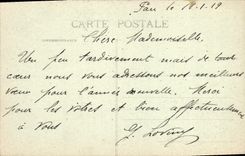 Pau le 18-1-19
CARTE POSTALE
Chère Mademoiselle
Un peu tardivement mais de tout
cœur nous vous adressons nos meilleurs
vœux pour l'année nouvelle. Merci
pour les vôtres et bien affectueusement
à vous